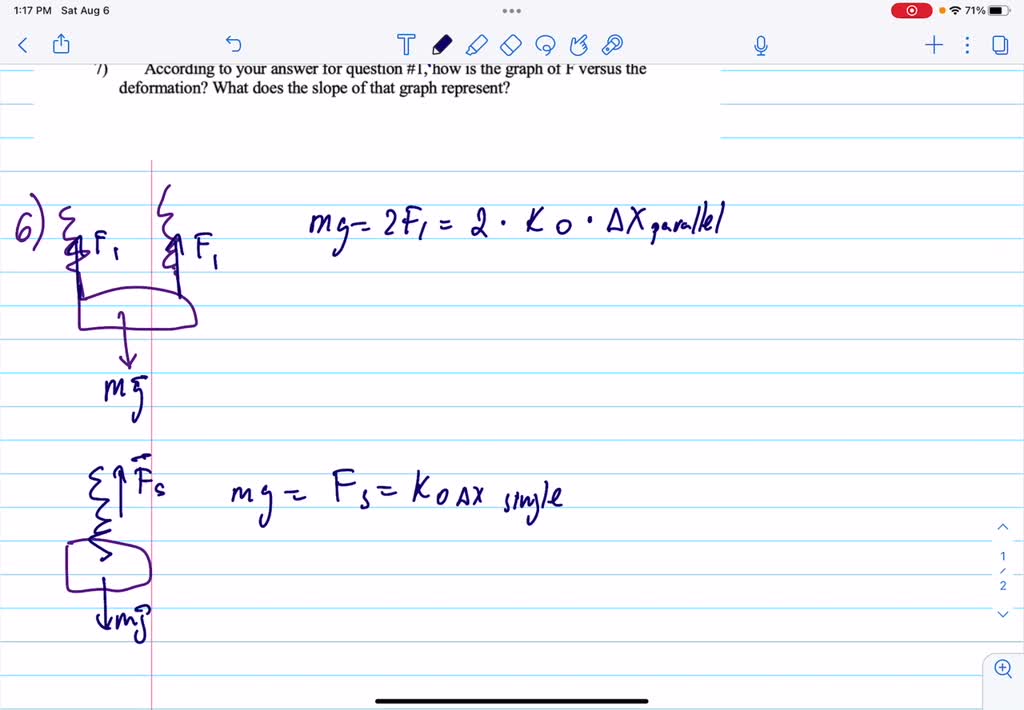 1:17 PM Sat Aug 6
71%
7) According to your answer for question #1, how is the graph of F versus the
deformation? What does the slope of that graph represent?
6) F₁ F₁ mg = 2F₁ = 2 · K₀ · ΔX parallel
mg
Fs mg = Fs = K₀ ΔX single
mg
1
/
2